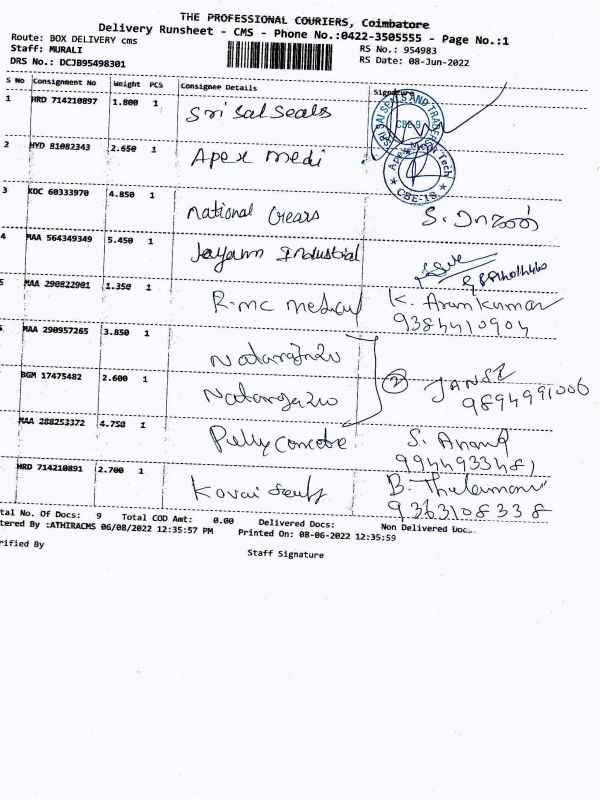 THE PROFESSIONAL COURIERS, Coimbatore
Delivery Runsheet - CMS - Phone No.:0422-3505555 - Page No.:1
Route: BOX DELIVERY cms
RS No.: 954983
Staff: MURALI
RS Date: 08-Jun-2022
DRS No.: DCJB95498301
S No Consignment No Weight PCS Consignee Details Signature
1 HRD 714210897 1.800 1 Sri Sai Seals
SRI SAI SEALS AND
CBE-9
2 HYD 81082343 2.650 1 Apex medi
Apex Tech
CBE-18
3 KOC 60333970 4.850 1 National Gears S. ராஜன்
4 MAA 564349349 5.450 1 Jayam Industrial
5 MAA 290822901 1.350 1 R-mc medical K. Arunkumar
9384410904
MAA 290957265 3.850 1
BGM 17475482 2.600 1 2 JANSI
9894991006
MAA 288253372 4.750 1 S. Anand
9944933481
HRD 714210891 2.700 1 Kovai Seals B.
9363108338
tal No. Of Docs: 9 Total COD Amt: 0.00 Delivered Docs: Non Delivered Doc
tered By :ATHIRACMS 06/08/2022 12:35:57 PM Printed On: 08-06-2022 12:35:59
rified By
Staff Signature